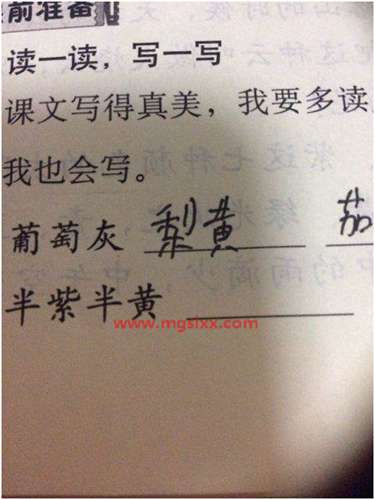 前准备
读一读，写一写
课文写得真美，我要多读
我也会写。
葡萄灰 梨黄 茄
半紫半黄
www.mgslxx.com